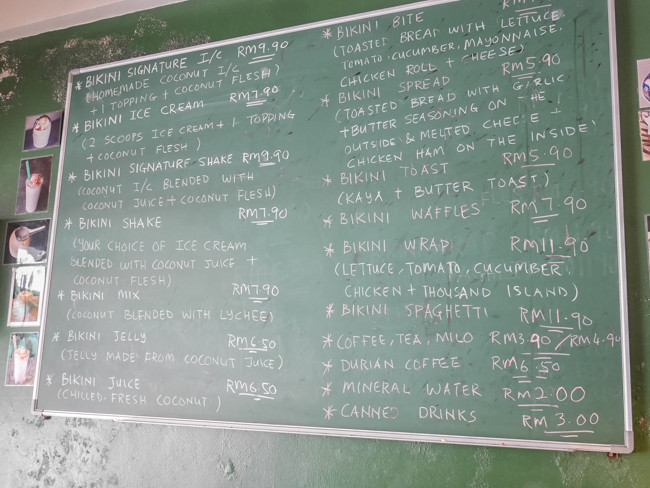 * BIKINI SIGNATURE I/C RM9.90
(HOMEMADE COCONUT I/C
+ 1 TOPPING + COCONUT FLESH)
* BIKINI ICE CREAM RM7.90
(2 SCOOPS ICE CREAM + 1 TOPPING
+ COCONUT FLESH)
* BIKINI SIGNATURE SHAKE RM9.90
(COCONUT I/C BLENDED WITH
COCONUT JUICE + COCONUT FLESH)
* BIKINI SHAKE RM7.90
(YOUR CHOICE OF ICE CREAM
BLENDED WITH COCONUT JUICE +
COCONUT FLESH)
* BIKINI MIX RM7.90
(COCONUT BLENDED WITH LYCHEE)
* BIKINI JELLY RM6.50
(JELLY MADE FROM COCONUT JUICE)
* BIKINI JUICE RM6.50
(CHILLED FRESH COCONUT)
* BIKINI BITE
(TOASTED BREAD WITH LETTUCE
TOMATO, CUCUMBER, MAYONNAISE,
CHICKEN ROLL + CHEESE)
* BIKINI SPREAD RM5.90
(TOASTED BREAD WITH GARLIC
+ BUTTER SEASONING ON THE
OUTSIDE & MELTED CHEESE +
CHICKEN HAM ON THE INSIDE)
* BIKINI TOAST RM5.90
(KAYA + BUTTER TOAST)
* BIKINI WAFFLES RM7.90
* BIKINI WRAP RM11.90
(LETTUCE, TOMATO, CUCUMBER,
CHICKEN + THOUSAND ISLAND)
* BIKINI SPAGHETTI RM11.90
* COFFEE, TEA, MILO RM3.90/RM4.90
* DURIAN COFFEE RM6.50
* MINERAL WATER RM2.00
* CANNED DRINKS RM3.00